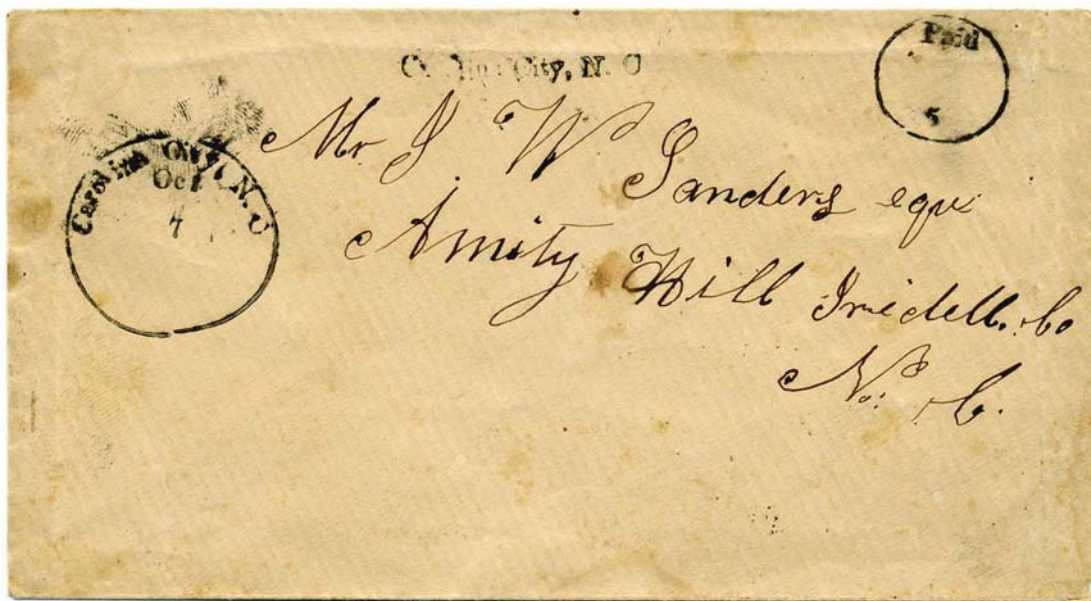 Paid
5
City, N. C
Carolina City, N. C
Oct
7
Mr J W Sanders equ
Amity Hill Iredell. Co
N. C.